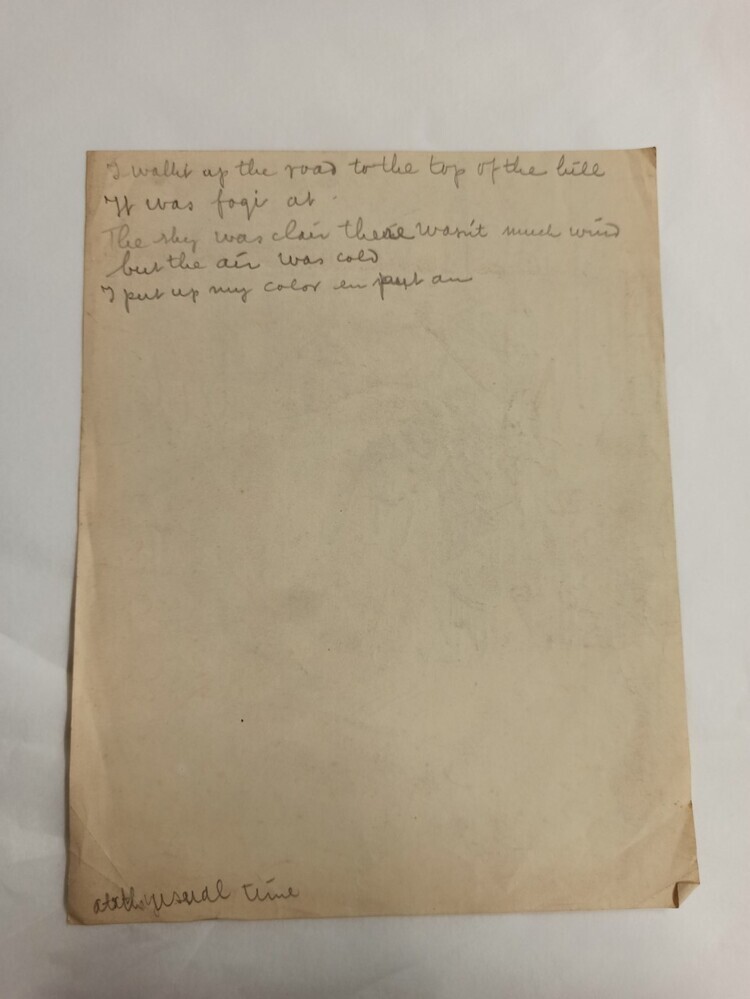 I walkt up the road to the top of the hill
It was fogi at
The sky was clair there wasn't much wind
but the air was cold
I put up my color en put an
at the usual time